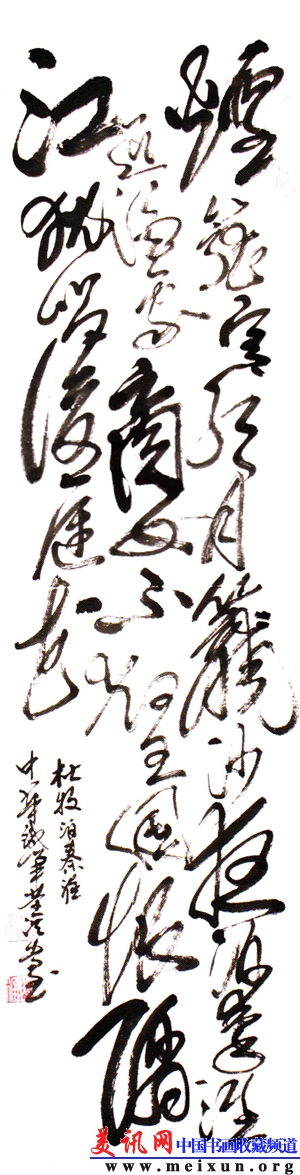 煙籠寒水月籠沙夜泊秦淮
近酒家商女不知亡國恨隔
江猶唱後庭花
杜牧泊秦淮
美讯网 中国书画收藏频道
www.meixun.org